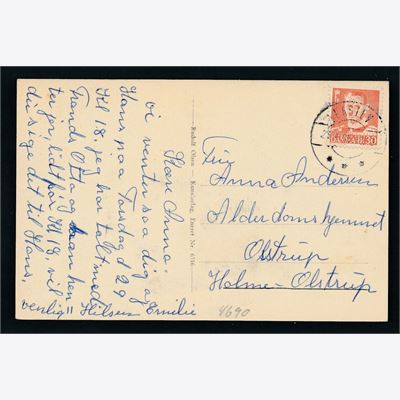 Kære Anna.
vi venter saa dig og
Hans paa Torsdad 29
Kl 18. jeg har talt med
Frands Otto og han hen
ter jer lidt før Kl 18, vil
du sige det til Hans,
venlig = Hilsen Emilie
Rudolf Olsen - Kunstforlag, Eneret Nr. 6716
Fru
Anna Andersen
Alderdomshjemmet
Olstrup
Holme-Olstrup
4690
30